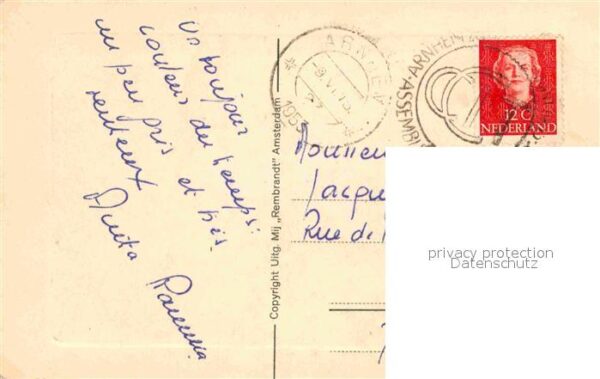 toujours
couleur du temps:
un peu gris et très
venteux
Anita
Copyright Uitg. Mij „Rembrandt” Amsterdam
ARNHEM
1955
ARNHEM
NEDERLAND
12 C
Monsieur
Jacqu
Rue de
privacy protection
Datenschutz